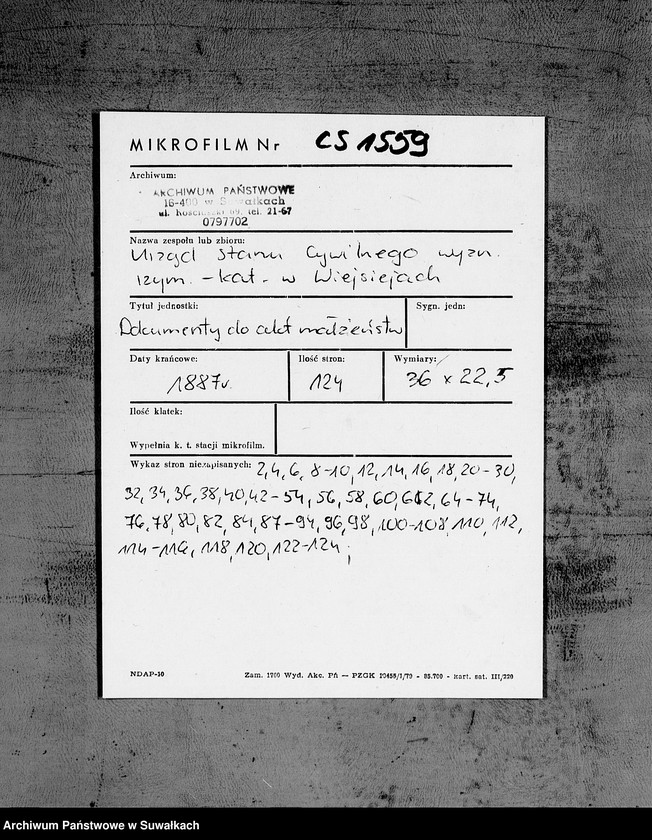 MIKROFILM Nr CS 1559
Archiwum:
ARCHIWUM PAŃSTWOWE
16-400 w Suwałkach
ul. Kościuszki 69, tel. 21-67
0797702
Nazwa zespołu lub zbioru:
Urząd Stanu Cywilnego wyzn.
rzym. - kat. w Wiejsiejach
Tytuł jednostki:
Sygn. jedn:
Dokumenty do akt małżeństw
Daty krańcowe:
Ilość stron:
Wymiary:
1887r.
124
36 x 22,5
Ilość klatek:
Wypełnia k. t. stacji mikrofilm.
Wykaz stron niezapisanych: 2,4,6,8-10,12,14,16,18,20-30,
32,34,36,38,40,42-54,56,58,60,62,64-74,
76,78,80,82,84,87-94,96,98,100-108,110,112,
114-116,118,120,122-124;
NDAP-10
Zam. 1700 Wyd. Akc. Pń — PZGK - 85.700 - kart. sat. III/220
Archiwum Państwowe w Suwałkach